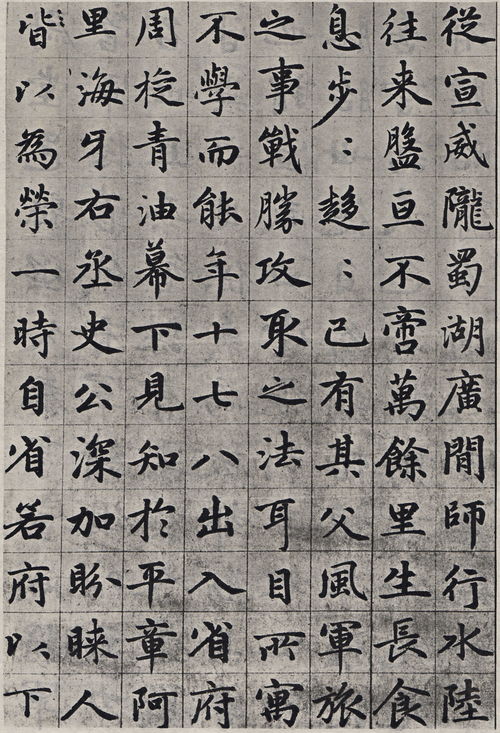 從宣威隴蜀湖廣閒師行水陸
往来盤亘不啻萬餘里生長食
息步：趍：已有其父風軍旅
之事戰勝攻取之法耳目所寓
不學而能年十七八出入省府
周旋青油幕下見知於平章阿
里海牙右丞史公深加盼睞人
皆以為榮一時自省若府以下